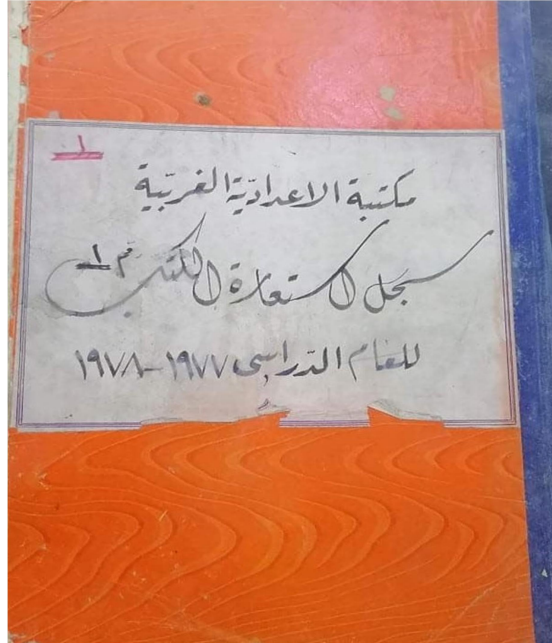 ١
مكتبة الاعداديّة الغربيّة
سجل استعارة الكتب رقم ١
للعام الدّراسي ١٩٧٧-١٩٧٨